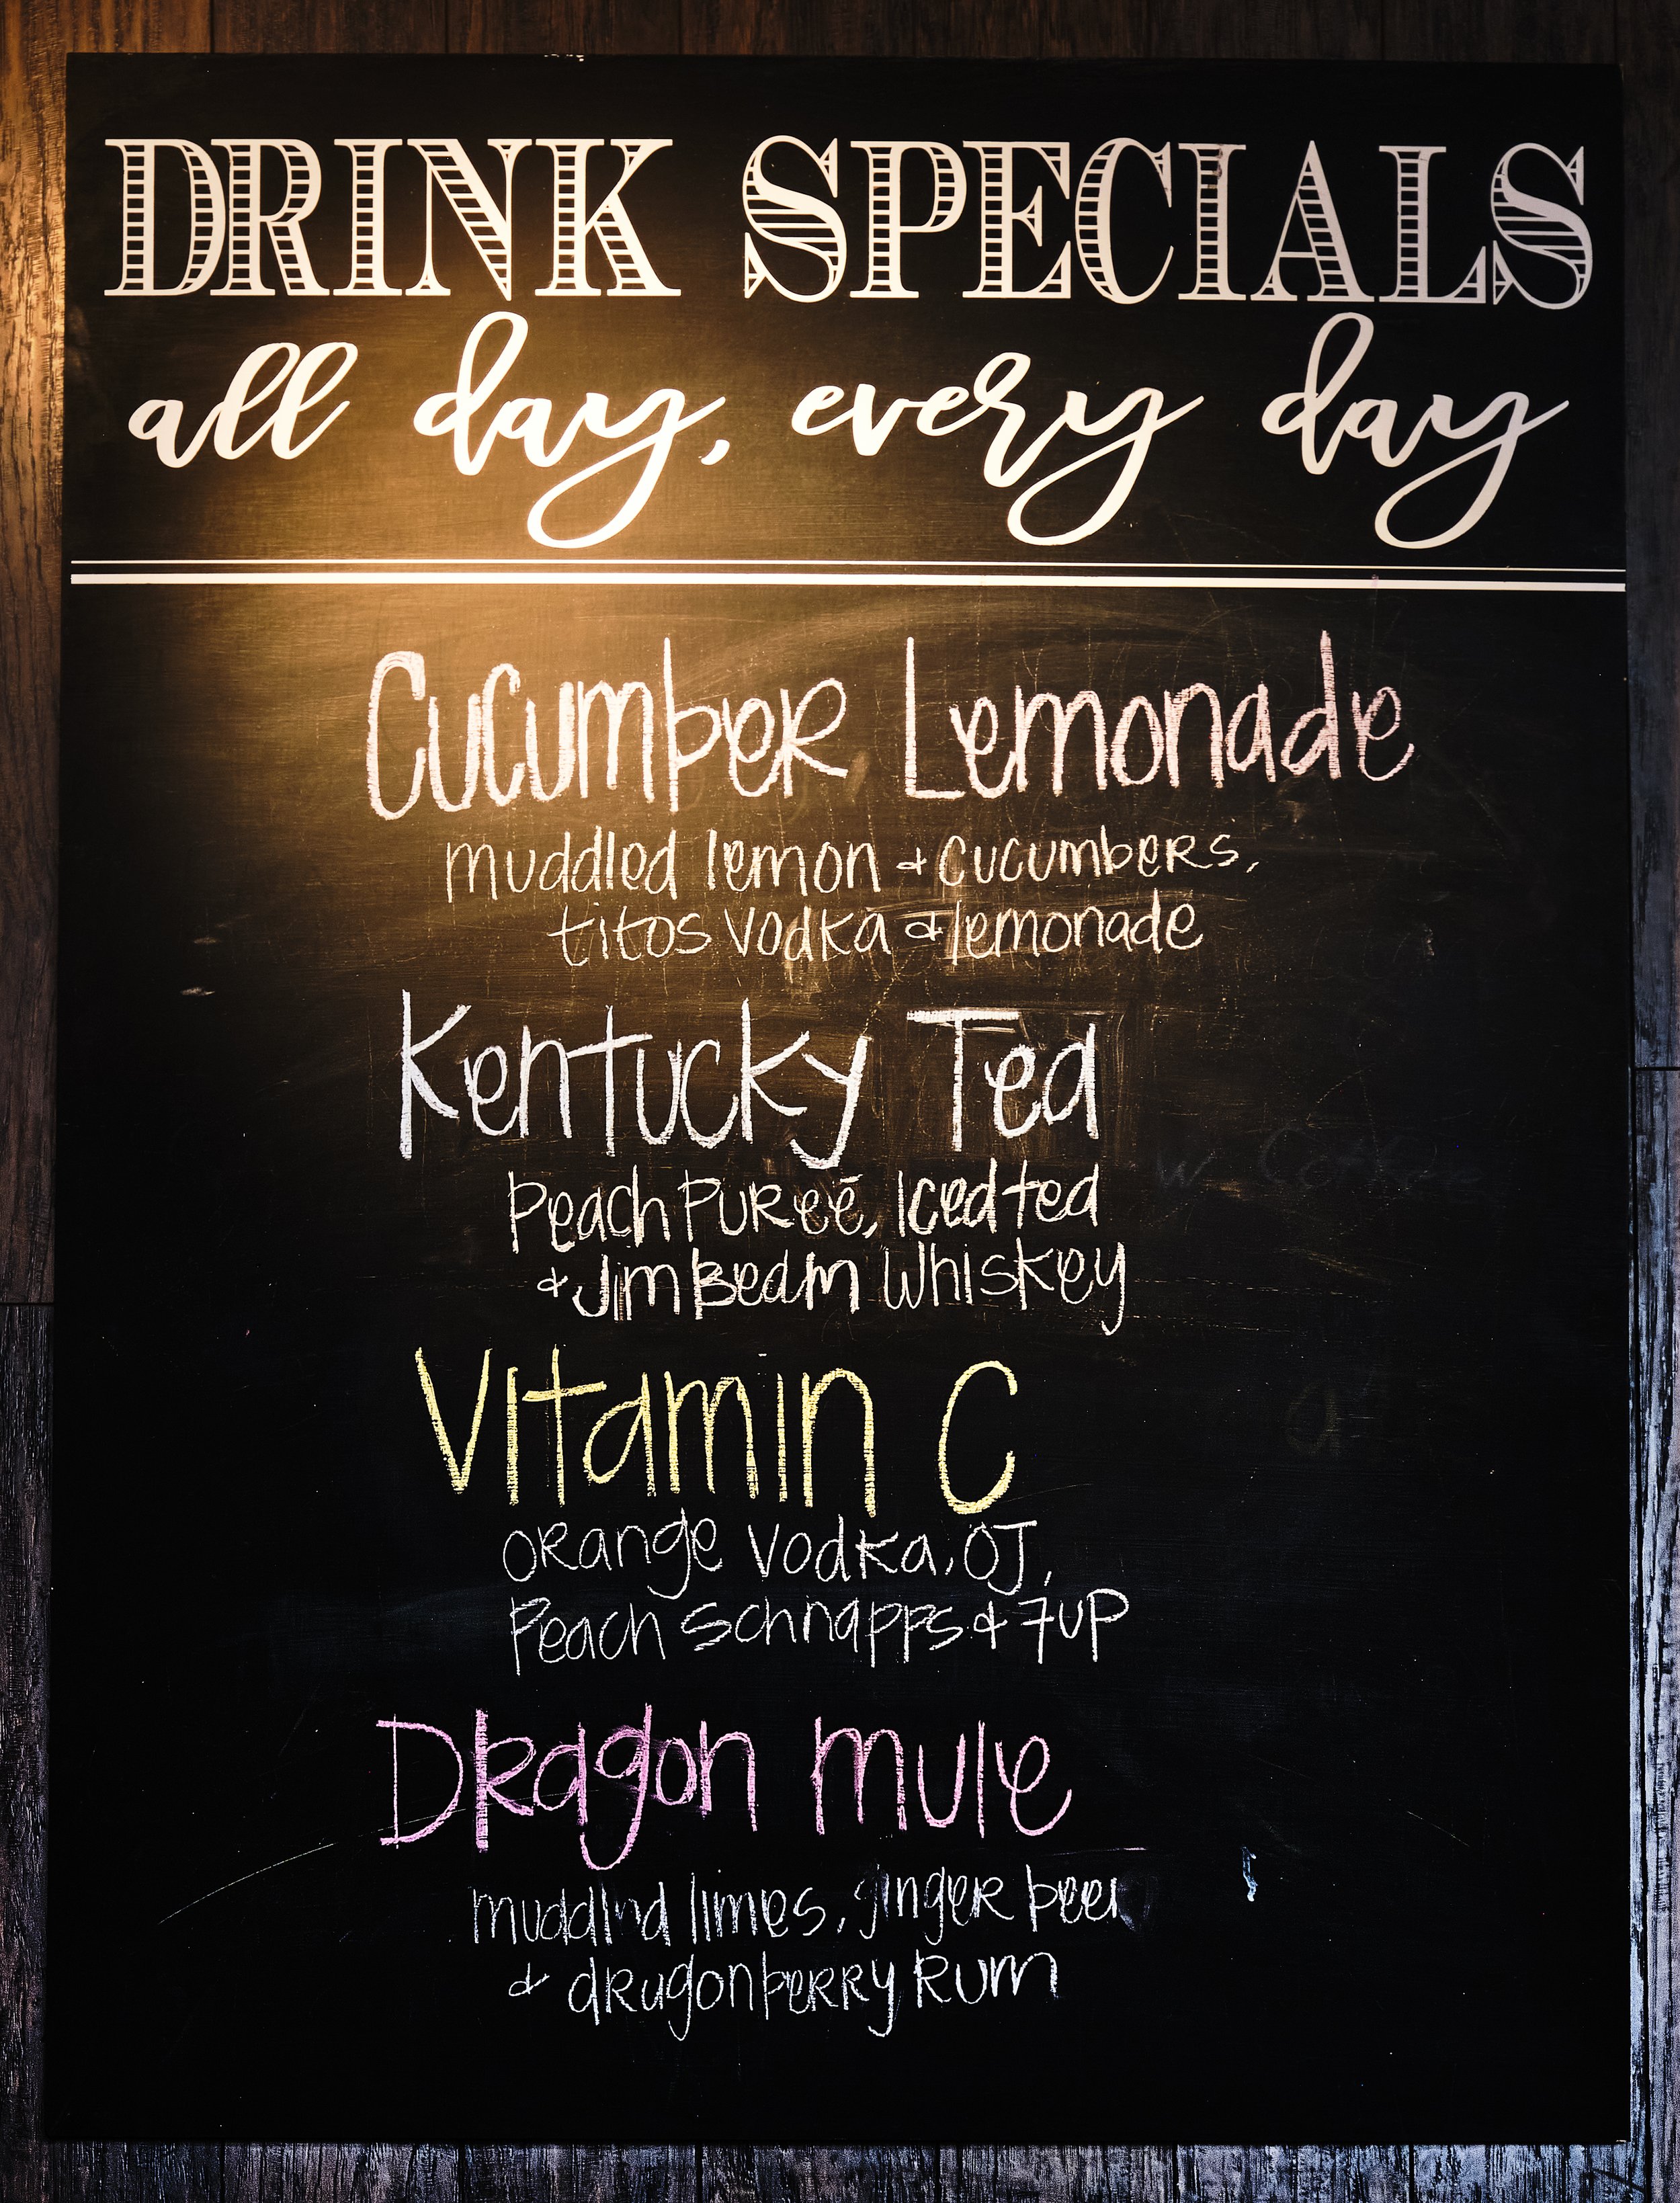 DRINK SPECIALS
all day, every day
Cucumber Lemonade
muddled lemon & cucumbers,
titos vodka & lemonade
Kentucky Tea
Peach Pureé, Iced tea
& Jim Beam Whiskey
Vitamin C
orange vodka, OJ,
Peach schnapps & 7up
Dragon mule
muddled limes, ginger beer
& dragonberry Rum